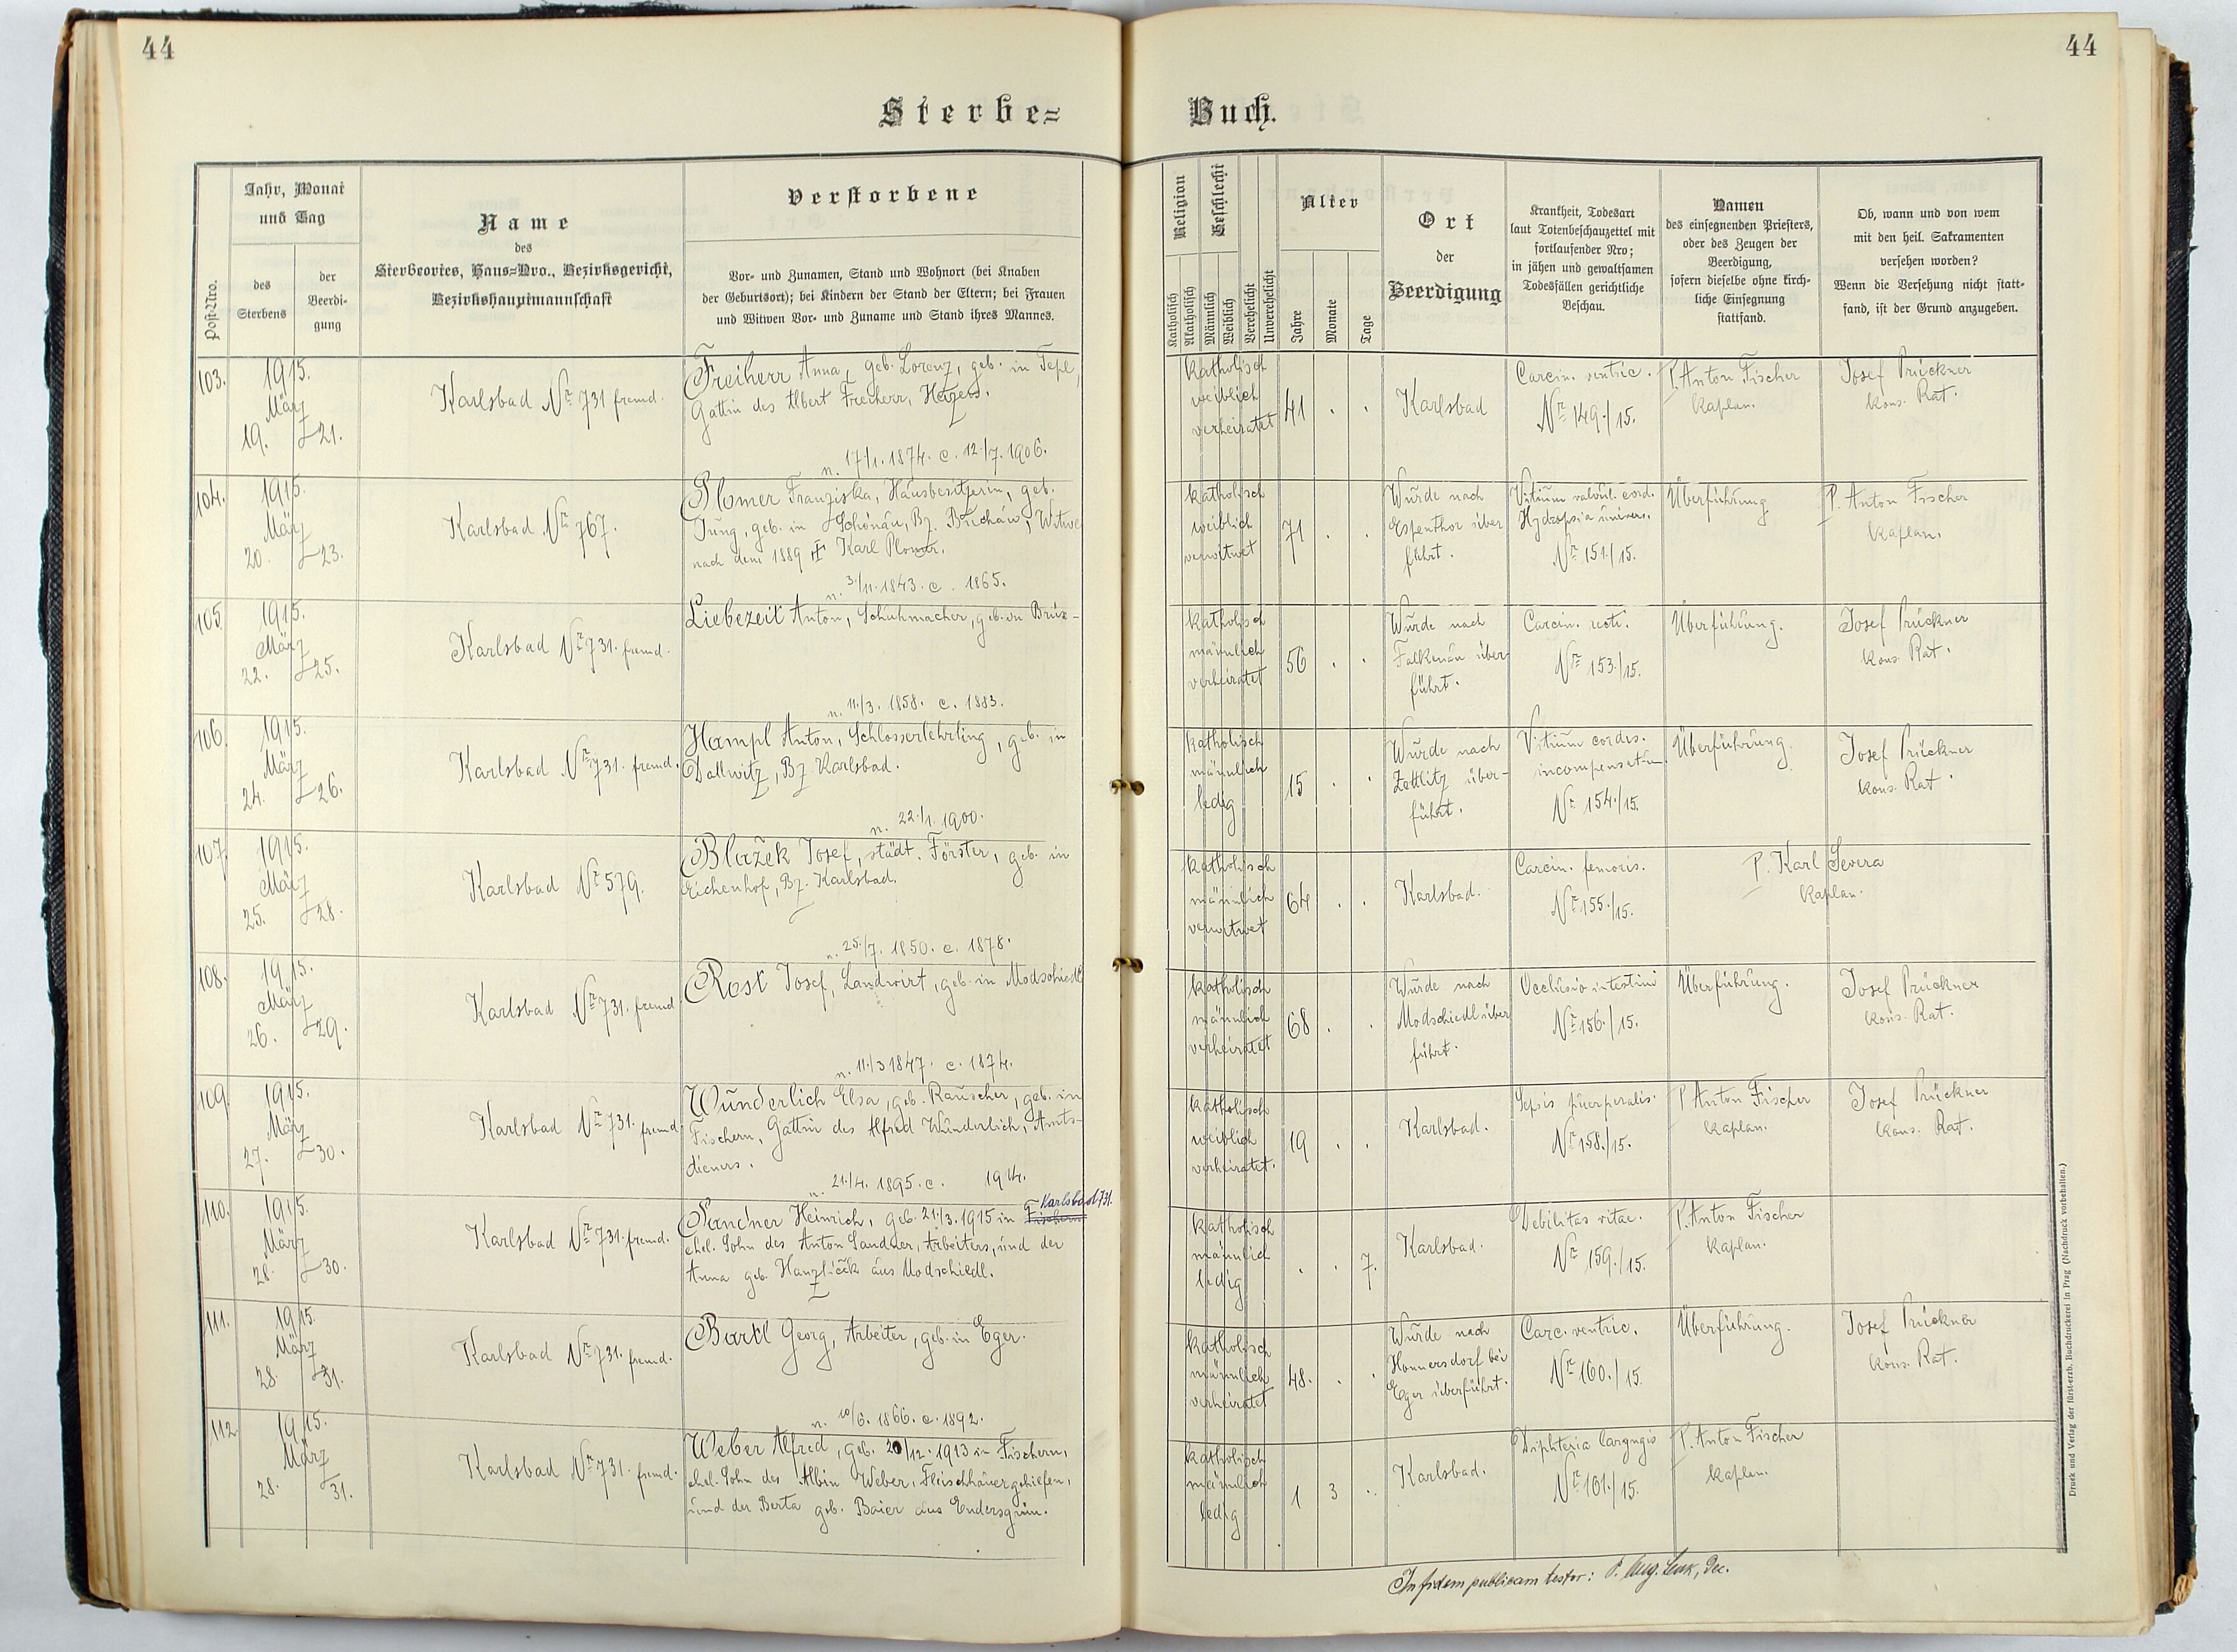 44
44
Sterbe=
Buch.
Post-Nro.
Jahr, Monat
und Tag
des
Sterbens
der
Beerdi-
gung
Name
des
Sterbeortes, Haus-Nro., Bezirksgericht,
Bezirkshauptmannschaft
Verstorbene
Vor- und Zunamen, Stand und Wohnort (bei Knaben
der Geburtsort); bei Kindern der Stand der Eltern; bei Frauen
und Witwen Vor- und Zuname und Stand ihres Mannes.
Religion
Katholisch
Akatholisch
Geschlecht
Männlich
Weiblich
Verehelicht
Unverehelicht
Alter
Jahre
Monate
Tage
Ort
der
Beerdigung
Krankheit, Todesart
laut Totenbeschauzettel mit
fortlaufender Nro;
in jähen und gewaltsamen
Todesfällen gerichtliche
Beschau.
Namen
des einsegnenden Priesters,
oder des Zeugen der
Beerdigung,
sofern dieselbe ohne kirch-
liche Einsegnung
stattfand.
Ob, wann und von wem
mit den heil. Sakramenten
versehen worden?
Wenn die Versehung nicht statt-
fand, ist der Grund anzugeben.
103.
1915.
März
19. 21.
Karlsbad Nr 731 fremd.
Freiherr Anna, geb. Lorenz, geb. in Tepl,
Gattin des Albert Freiherr, Hegers.
n. 17/1. 1874. c. 12./7. 1906.
katholisch
weiblich
verheiratet
41 . .
Karlsbad
Carcin. ventric.
Nr 149./15.
P. Anton Fischer
Kaplan.
Josef Prückner
kons. Rat.
104.
1915.
März
20. 23.
Karlsbad Nr 767.
Plomer Franziska, Hausbesitzerin, geb.
Jung, geb. in Schönau, Bz. Buchau, Witwe
nach dem 1889 ☩ Karl Plomer.
n. 3./11. 1843. c. 1865.
katholisch
weiblich
verwitwet
71 . .
Wurde nach
Espenthor über
führt.
Vitium valvul. cord.
Hydropsia univers.
Nr 151./15.
Überführung
P. Anton Fischer
Kaplan.
105.
1915.
März
22. 25.
Karlsbad Nr 731. fremd.
Liebezeit Anton, Schuhmacher, geb. in Brüx-
n. 11./3. 1858. c. 1883.
katholisch
männlich
verheiratet
56 . .
Wurde nach
Falkenau über-
führt.
Carcin. recti.
Nr 153./15.
Überführung.
Josef Prückner
kons. Rat.
106.
1915.
März
24. 26.
Karlsbad Nr 731. fremd.
Hampl Anton, Schlosserlehrling, geb. in
Dallwitz, Bz Karlsbad.
n. 22./1. 1900.
katholisch
männlich
ledig
15 . .
Wurde nach
Zettlitz über-
führt.
Vitium cordis.
incompensatum.
Nr 154./15.
Überführung.
Josef Prückner
kons. Rat.
107.
1915.
März
25. 28.
Karlsbad Nr 579.
Blažek Josef, städt. Förster, geb. in
Eichenhof, Bz. Karlsbad.
n. 25./7. 1850. c. 1878.
katholisch
männlich
verwitwet
64 . .
Karlsbad.
Carcin. femoris.
Nr 155./15.
P. Karl Severa
Kaplan.
108.
1915.
März
26. 29.
Karlsbad Nr 731. fremd
Rost Josef, Landwirt, geb. in Modschiedl
n. 11./3 1847. c. 1874.
katholisch
männlich
verheiratet
68 . .
Wurde nach
Modschiedl über
führt.
Occlusio intestini
Nr 156./15.
Überführung.
Josef Prückner
kons. Rat.
109.
1915.
März
27. 30.
Karlsbad Nr 731. fremd
Wunderlich Elsa, geb. Rauscher, geb. in
Fischern, Gattin des Alfred Wunderlich, Amts-
dieners.
n. 21./4. 1895. c. 1914.
katholisch
weiblich
verheiratet.
19 . .
Karlsbad.
Sepsis puerperalis.
Nr 158./15.
P. Anton Fischer
Kaplan.
Josef Prückner
kons. Rat.
110.
1915.
März
28. 30.
Karlsbad Nr 731. fremd.
Karlsbad 731.
Sandner Heinrich, geb. 21./3. 1915 in Fischern
ehel. Sohn des Anton Sandner, Arbeiters, und der
Anna geb. Hanzliček aus Modschiedl.
katholisch
männlich
ledig
. . 7.
Karlsbad.
Debilitas vitae.
Nr 159./15.
P. Anton Fischer
Kaplan.
111.
1915.
März
28. 31.
Karlsbad Nr 731. fremd.
Bartl Georg, Arbeiter, geb. in Eger.
n. 10/6. 1866. c. 1892.
katholisch
männlich
verheiratet
48. . .
Wurde nach
Honnersdorf bei
Eger überführt.
Carc. ventric.
Nr 160./15.
Überführung.
Josef Prückner
kons. Rat.
112.
1915.
März
28. 31.
Karlsbad Nr 731. fremd.
Weber Alfred, geb. 20/12. 1913 in Fischern,
ehel. Sohn des Albin Weber, Fleischhauergehilfen,
und der Berta geb. Baier aus Endersgrün.
katholisch
männlich
ledig
1 3 .
Karlsbad.
Diphteria laryngis
Nr 161./15.
P. Anton Fischer
Kaplan.
In fidem publicam testor: P. Aug. Dec.
Druck und Verlag der fürst-erzb. Buchdruckerei in Prag (Nachdruck vorbehalten.)